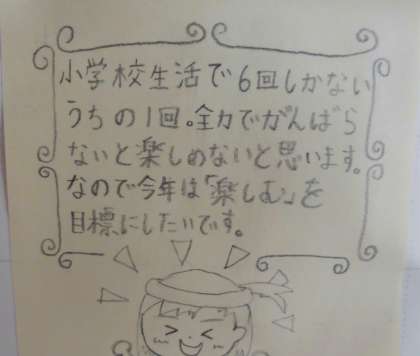 小学校生活で6回しかない
うちの1回。全力でがんばら
ないと楽しめないと思います。
なので今年は「楽しむ」を
目標にしたいです。